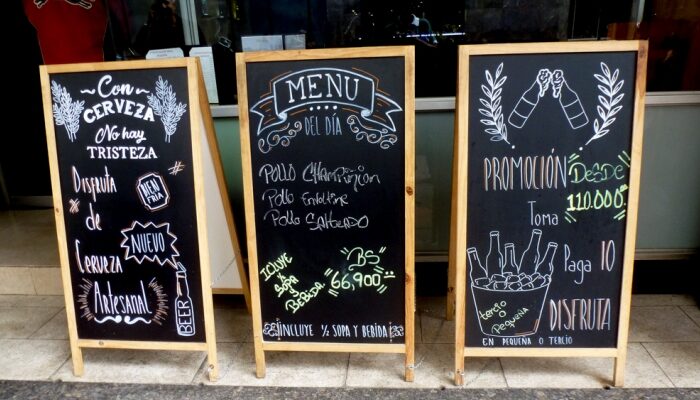 Con
CERVEZA
No hay
TRISTEZA
Disfruta
BIEN
FRIA
de
NUEVO
Cerveza
Artesanal
BEER
MENU
DEL DÍA
POLLO CHAMPIÑON
Pollo
Pollo SALTEADO
INCLUYE
SOPA Y
BEBIDA
BS
66,900
INCLUYE ½ SOPA Y BEBIDA
PROMOCIÓN
DESDE
110.000
Toma
Paga 10
tercio o
pequeña
DISFRUTA
EN PEQUEÑA O TERCIO